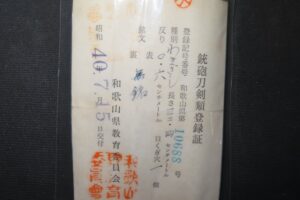 銃砲刀剣類登録証
登録記号番号 和歌山県第10688号
種別 わきざし
長さ センチメートル
反り 〇・六 センチメートル
目くぎ穴 一個
銘文 表 無銘
裏
昭和40.7.15日交付
和歌山県教育委員会